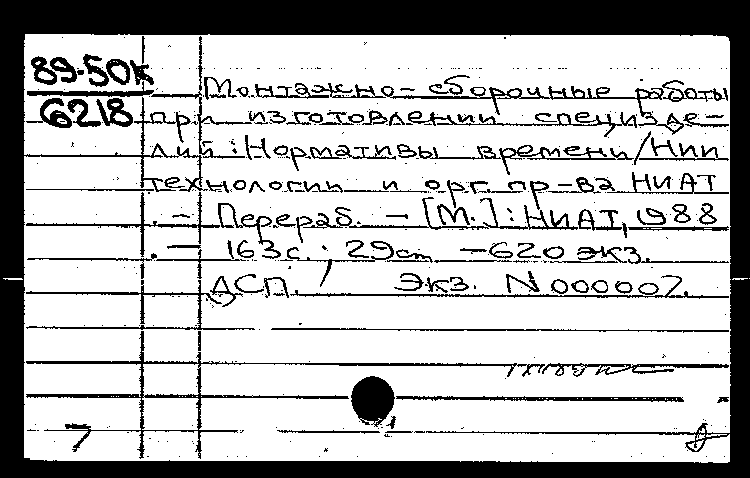 89-50к
6218
Монтажно-сборочные работы
при изготовлении специзде-
лий: Нормативы времени/НИИ
технологии и орг. пр-ва НИАТ
.- Перераб. - [М.]: НИАТ, 1988
.- 163с.; 29cm -620 экз.
ДСП. / Экз. N 000007.
7